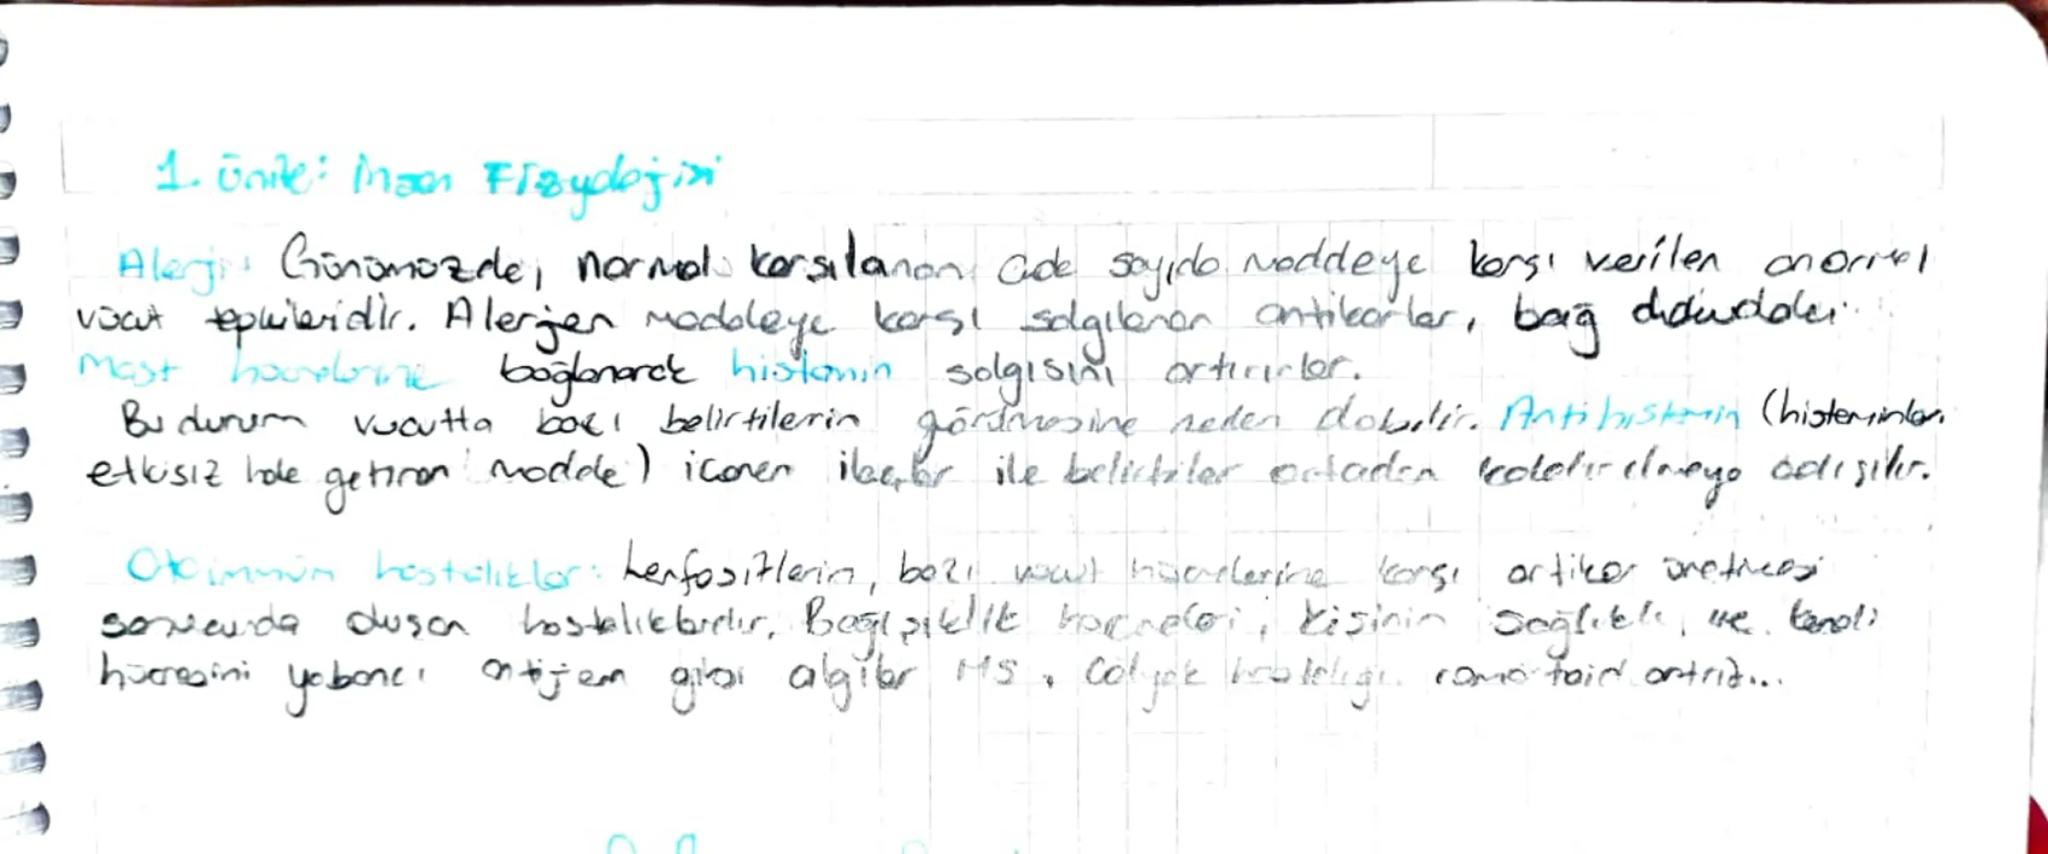 1. Ünite: İnsan Fizyolojisi
Alerji: Günümüzde, normal karşılanan çok sayıda maddeye karşı verilen anormal
vücut tepkileridir. Alerjen maddeye karşı salgılanan antikorlar, bağ dokudaki
Mast hücrelerine bağlanarak histamin salgısını artırırlar.
Bu durum vücutta bazı belirtilerin görülmesine neden olabilir. Antihistamin (histaminleri
etkisiz hale getiren madde) içeren ilaçlar ile belirtiler ortadan kaldırılmaya çalışılır.
Otoimmün hastalıklar: Lenfositlerin, bazı vücut hücrelerine karşı antikor üretmesi
sonucunda oluşan hastalıklardır. Bağışıklık hücreleri, kişinin sağlıklı ve kendi
hücresini yabancı antijen gibi algılar MS, Çölyak hastalığı romatoid artrit...